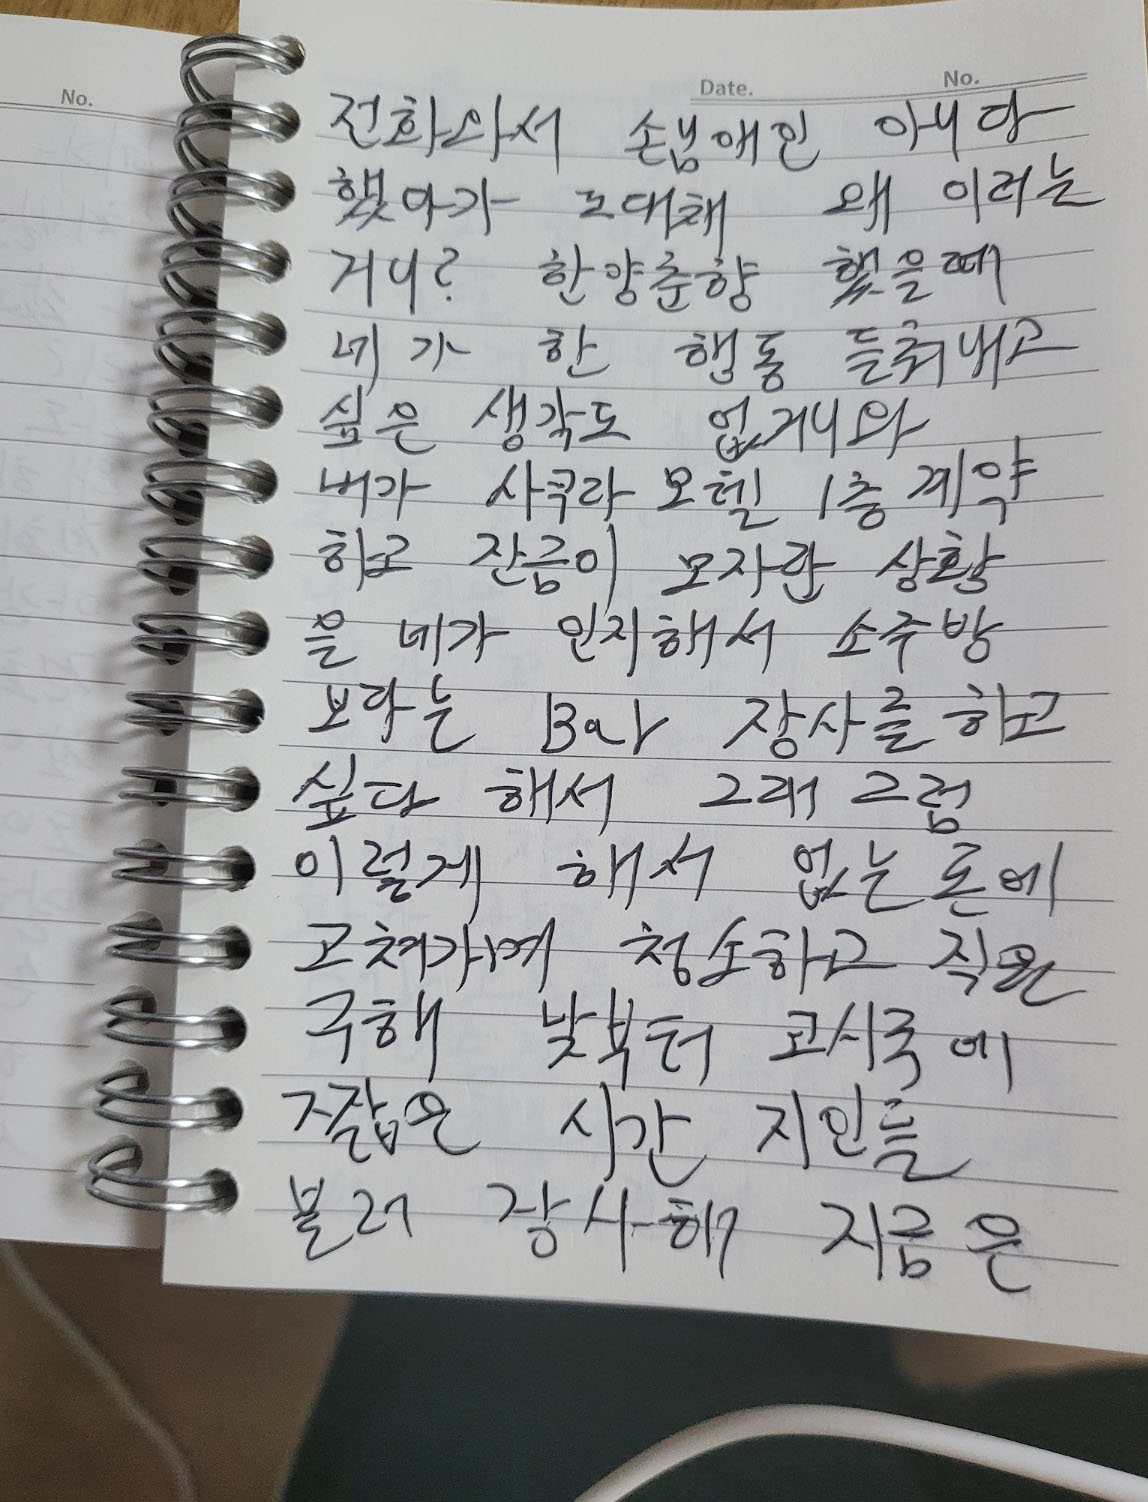 No.
Date. No.
전화와서 손님애인 아니다
했다가 도대체 왜 이러는
거니? 한양춘향 했을때
네가 한 행동 들춰내고
싶은 생각도 없거니와
내가 사쿠라 모텔 1층 계약
하고 잔금이 모자란 상황
을 네가 인지해서 소주방
보다는 Bar 장사를 하고
싶다 해서 그래 그럼
이렇게 해서 없는 돈에
고쳐가며 청소하고 직원
구해 낮부터 코시국에
장사해 시간 지인들
불러 장사해 지금은